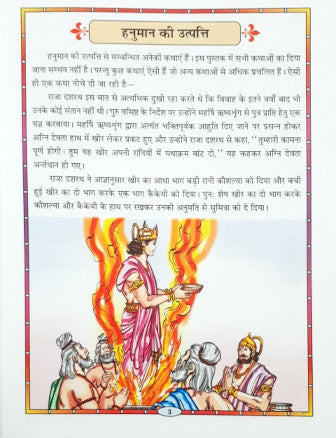 हनुमान की उत्पत्ति
हनुमान की उत्पत्ति से सम्बन्धित अनेकों कथाएं हैं। इस पुस्तक में सभी कथाओं का दिया
जाना सम्भव नहीं है। परन्तु कुछ कथाएं ऐसी हैं जो अन्य कथाओं से अधिक प्रचलित हैं। ऐसी
ही एक कथा नीचे दी जा रही है—
राजा दशरथ इस बात से अत्यधिक दुखी रहा करते थे कि विवाह के इतने वर्षों बाद भी
उनके कोई संतान नहीं थी। गुरु वसिष्ठ के निर्देश पर उन्होंने महर्षि ऋष्यशृंग से पुत्र प्राप्ति हेतु एक
यज्ञ करवाया। महर्षि ऋष्यशृंग द्वारा अत्यंत भक्तिपूर्वक आहुति दिए जाने पर प्रसन्न होकर
अग्नि देवता हाथ में खीर लेकर प्रकट हुए और उन्होंने राजा दशरथ से कहा, ''तुम्हारी कामना
पूर्ण होगी। तुम यह खीर अपनी रानियों में यथाक्रम बांट दो,'' यह कहकर अग्नि देवता
अर्न्तधान हो गए।
राजा दशरथ ने आज्ञानुसार खीर का आधा भाग बड़ी रानी कौशल्या को दिया और बची
हुई खीर का दो भाग करके एक भाग कैकेयी को दिया। पुन: शेष खीर का दो भाग करके
कौशल्या और कैकेयी के हाथ पर रखकर उनकी अनुमति से सुमित्रा को दे दिया।
3